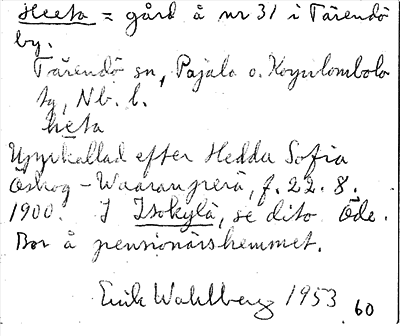 Heeta = gård å nr 31 i Tärendö
by.
Tärendö sn, Pajala o. Korpilombolo
tg, Nb. l.
heta
Uppkallad efter Hedda Sofia
Öskog - Waaranperä, f. 22. 8.
1900. I Isokylä, se dito Öde.
Bor å pensionärshemmet.
Erik Wahlberg 1953
60